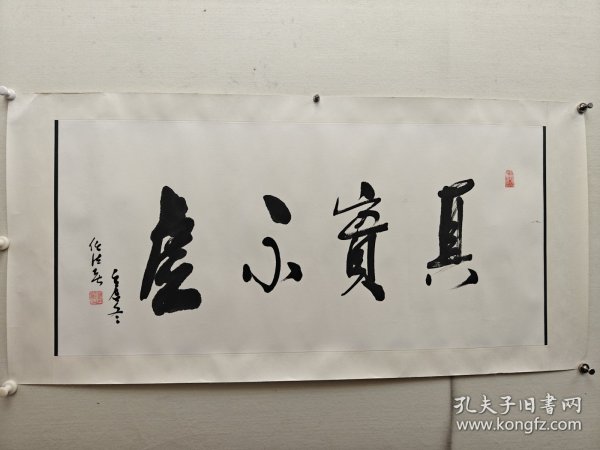 真實不虛
任法融
孔夫子旧書网
www.kongfz.com